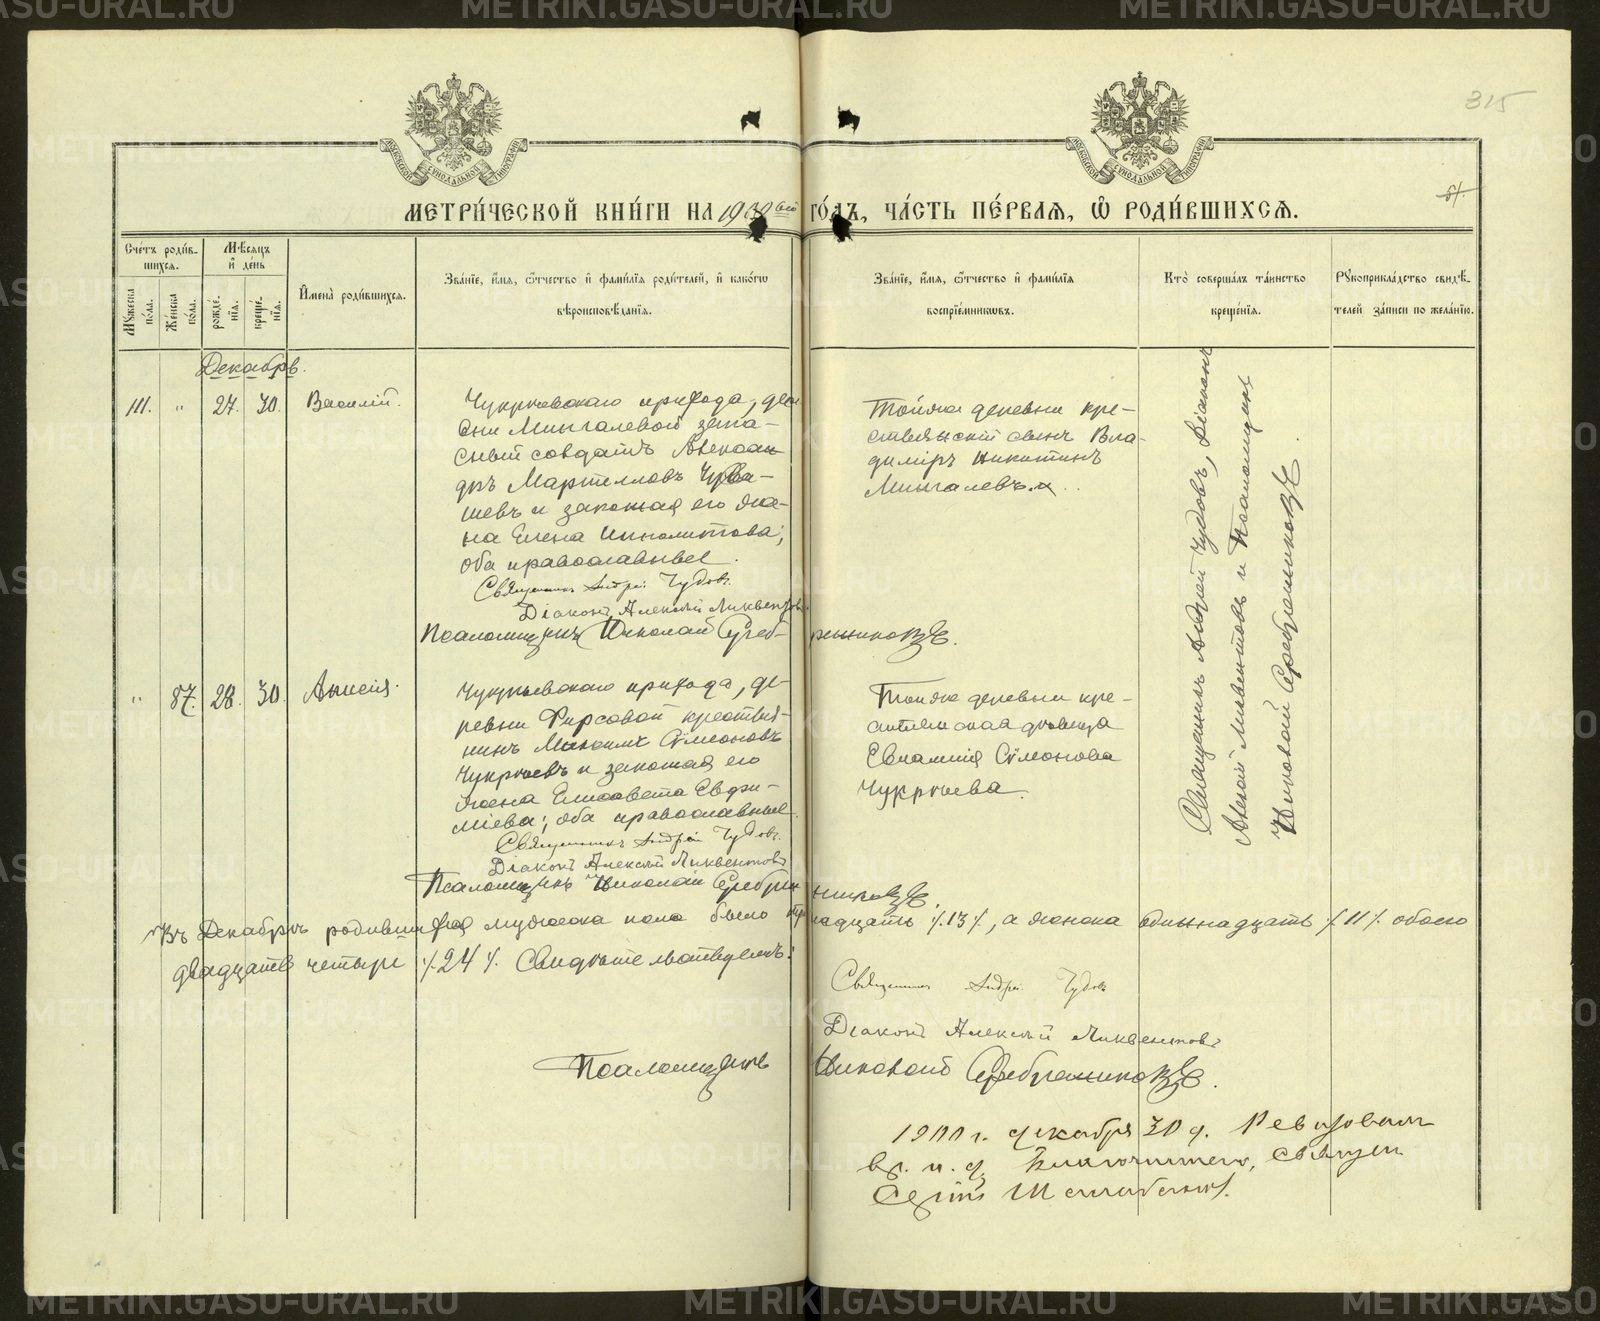 315
МЕТРИ́ЧЕСКОЙ КНИ́ГИ НА 1900 ый ГО́ДЪ, ЧА́СТЬ ПЕ́РВАЯ, Ѽ РОДИ́ВШИХСЯ.
Сче́тъ роди́в-
шихся.
Мꙋ́жеска по́ла.
Же́нска по́ла.
Мѣ́сяцъ
и҆ де́нь
рожде́нїѧ.
креще́нїѧ.
И҆мена̀ роди́вшихся.
Зва́нїе, и҆́мя, ѻ҆́тчество и҆ фами́лїя роди́телей, и҆ како́гѡ
вѣроисповѣ́данїя.
Зва́нїе, и҆́мя, ѻ҆́тчество и҆ фами́лїя
воспрїе́мникѡвъ.
Кто̀ соверша́лъ та́инство
креще́нїя.
Рꙋкоприкла́дство свидѣ́-
телей за́писи по жела́нїю.
Декабрь.
111. " 27. 30. Василій.
Чукрѣевскаго прихода, дере
вни Мингалевой запа-
сный солдатъ Алексан
дръ Мартемовъ Чува-
шевъ и законная его же-
на Елена Ипполитова;
оба православные.
Священникъ Андрей Чудовъ.
Діаконъ Алексѣй Ликвентовъ
Псаломщикъ Николай Сереб-ренниковъ.
Тойже деревни кре-
стьянскій сынъ Вла-
диміръ Никитинъ
Мингалевъ.
Священникъ Андрей Чудовъ, Діаконъ
Алексѣй Ликвентовъ и Псаломщикъ
Николай Серебренниковъ.
" 87. 28. 30. Анисія.
Чукрѣевскаго прихода, де-
ревни Фирсовой крестья-
нинъ Максимъ Сѵмеоновъ
Чукрѣевъ и законная его
жена Елисавета Евѳи-
міева; оба православные.
Священникъ Андрей Чудовъ.
Діаконъ Алексѣй Ликвентовъ
Псаломщикъ Николай Серебренниковъ.
Тойже деревни кре-
стьянская дѣвица
Сѵмеонова
Чукрѣева.
Въ Декабрѣ родившихся мужеска пола было тринадцать /.13/., а женска одиннадцать /.11/. обоего
двадцать четыре /.24/. Свидѣтельствуемъ:
Священникъ Андрей Чудовъ
Діаконъ Алексѣй Ликвентовъ
Псаломщикъ Николай Серебренниковъ.
1900 г. декабря 30 д. Ревизовалъ
вр. и. д. Благочиннаго, священ
Сергій
METRIKI.GASO-URAL.RU